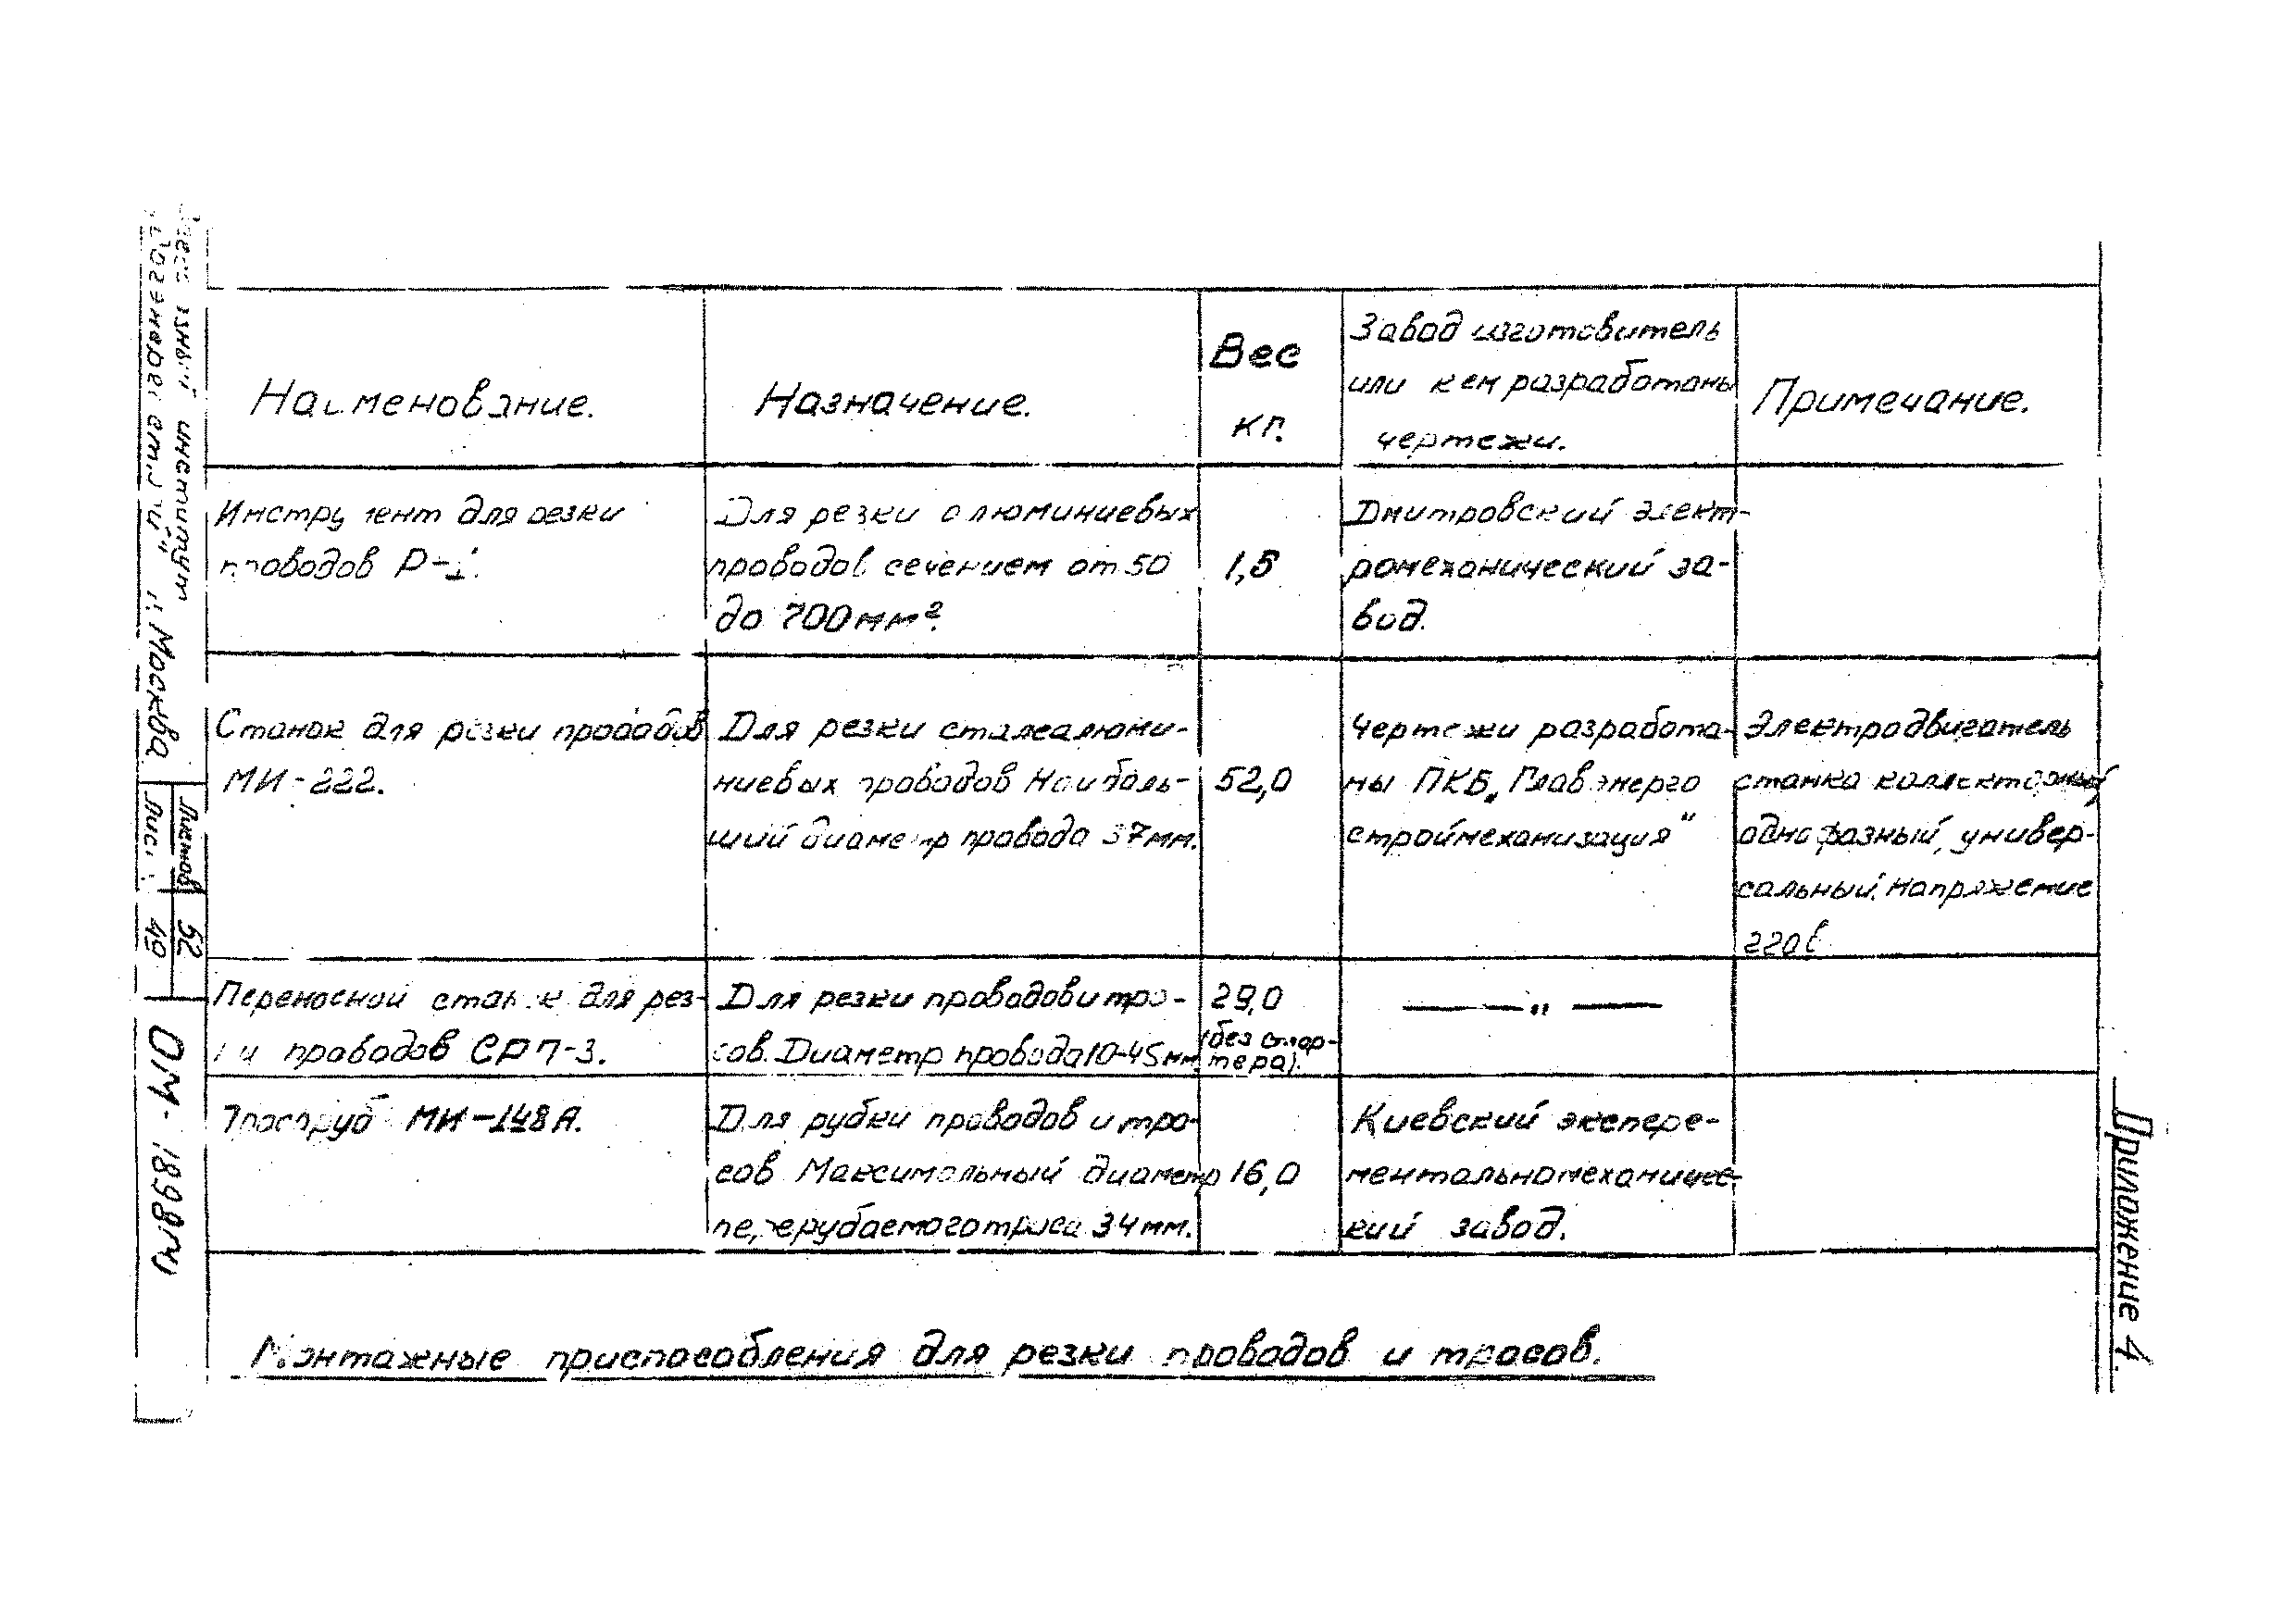 Приложение 4.
Наименование.
Назначение.
Вес
кг.
Завод изготовитель
или кем разработаны
чертежи.
Примечание.
Инструмент для резки
проводов Р-1.
Для резки алюминиевых
проводов сечением от 50
до 700 мм².
1,5
Дмитровский элект-
ромеханический за-
вод.
Станок для резки проводов
МИ-222.
Для резки сталеалюми-
ниевых проводов Наиболь-
ший диаметр провода 37мм.
52,0
Чертежи разработа-
ны ПКБ „Главэнерго
строймеханизация"
Электродвигатель
станка коллекторный,
однофазный, универ-
сальный. Напряжение
220в
Переносной станок для рез-
ки проводов СРП-3.
Для резки проводов и тро-
сов. Диаметр провода 10-45мм.
29,0
(без
тера).
— " —
Тросоруб МИ-148А.
Для рубки проводов и тро-
сов Максимальный диаметр
перерубаемого троса 34мм.
16,0
Киевский экспере-
ментальномеханичес-
кий завод.
Монтажные приспособления для резки проводов и тросов.
институт
г. Москва
Листов 52
Лис. 49
ОМ-1898